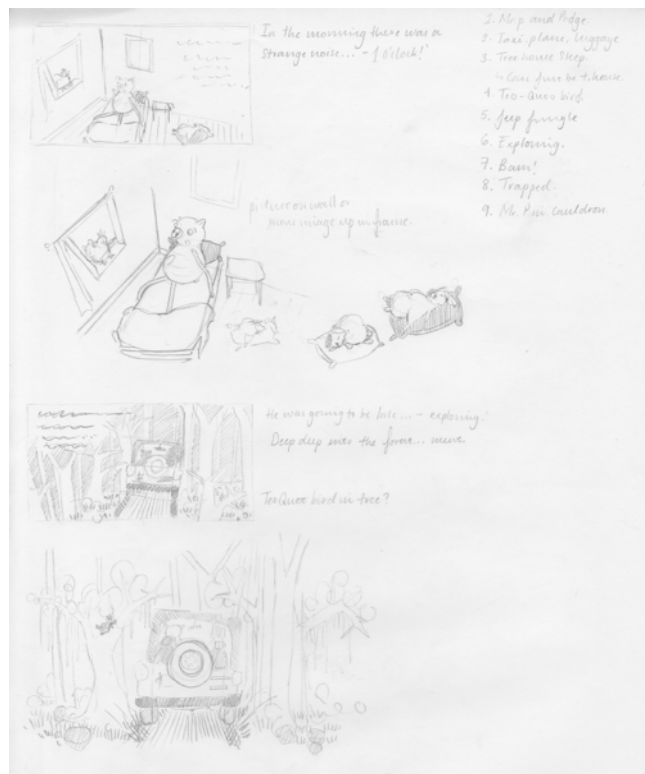 In the morning there was a
strange noise... - 9 o'clock!
1. Mr. P and Podge.
2. Taxi, plane, luggage
3. Tree house Sleep.
4. Too-Quoo bird.
5. Jeep jungle
6. Exploring.
7. Bam!
8. Trapped.
9. Mr. P in Cauldron.
picture on wall or
move image up in frame.
He was going to be late... - exploring.
Deep deep into the forest...
Too Quoo bird in tree?